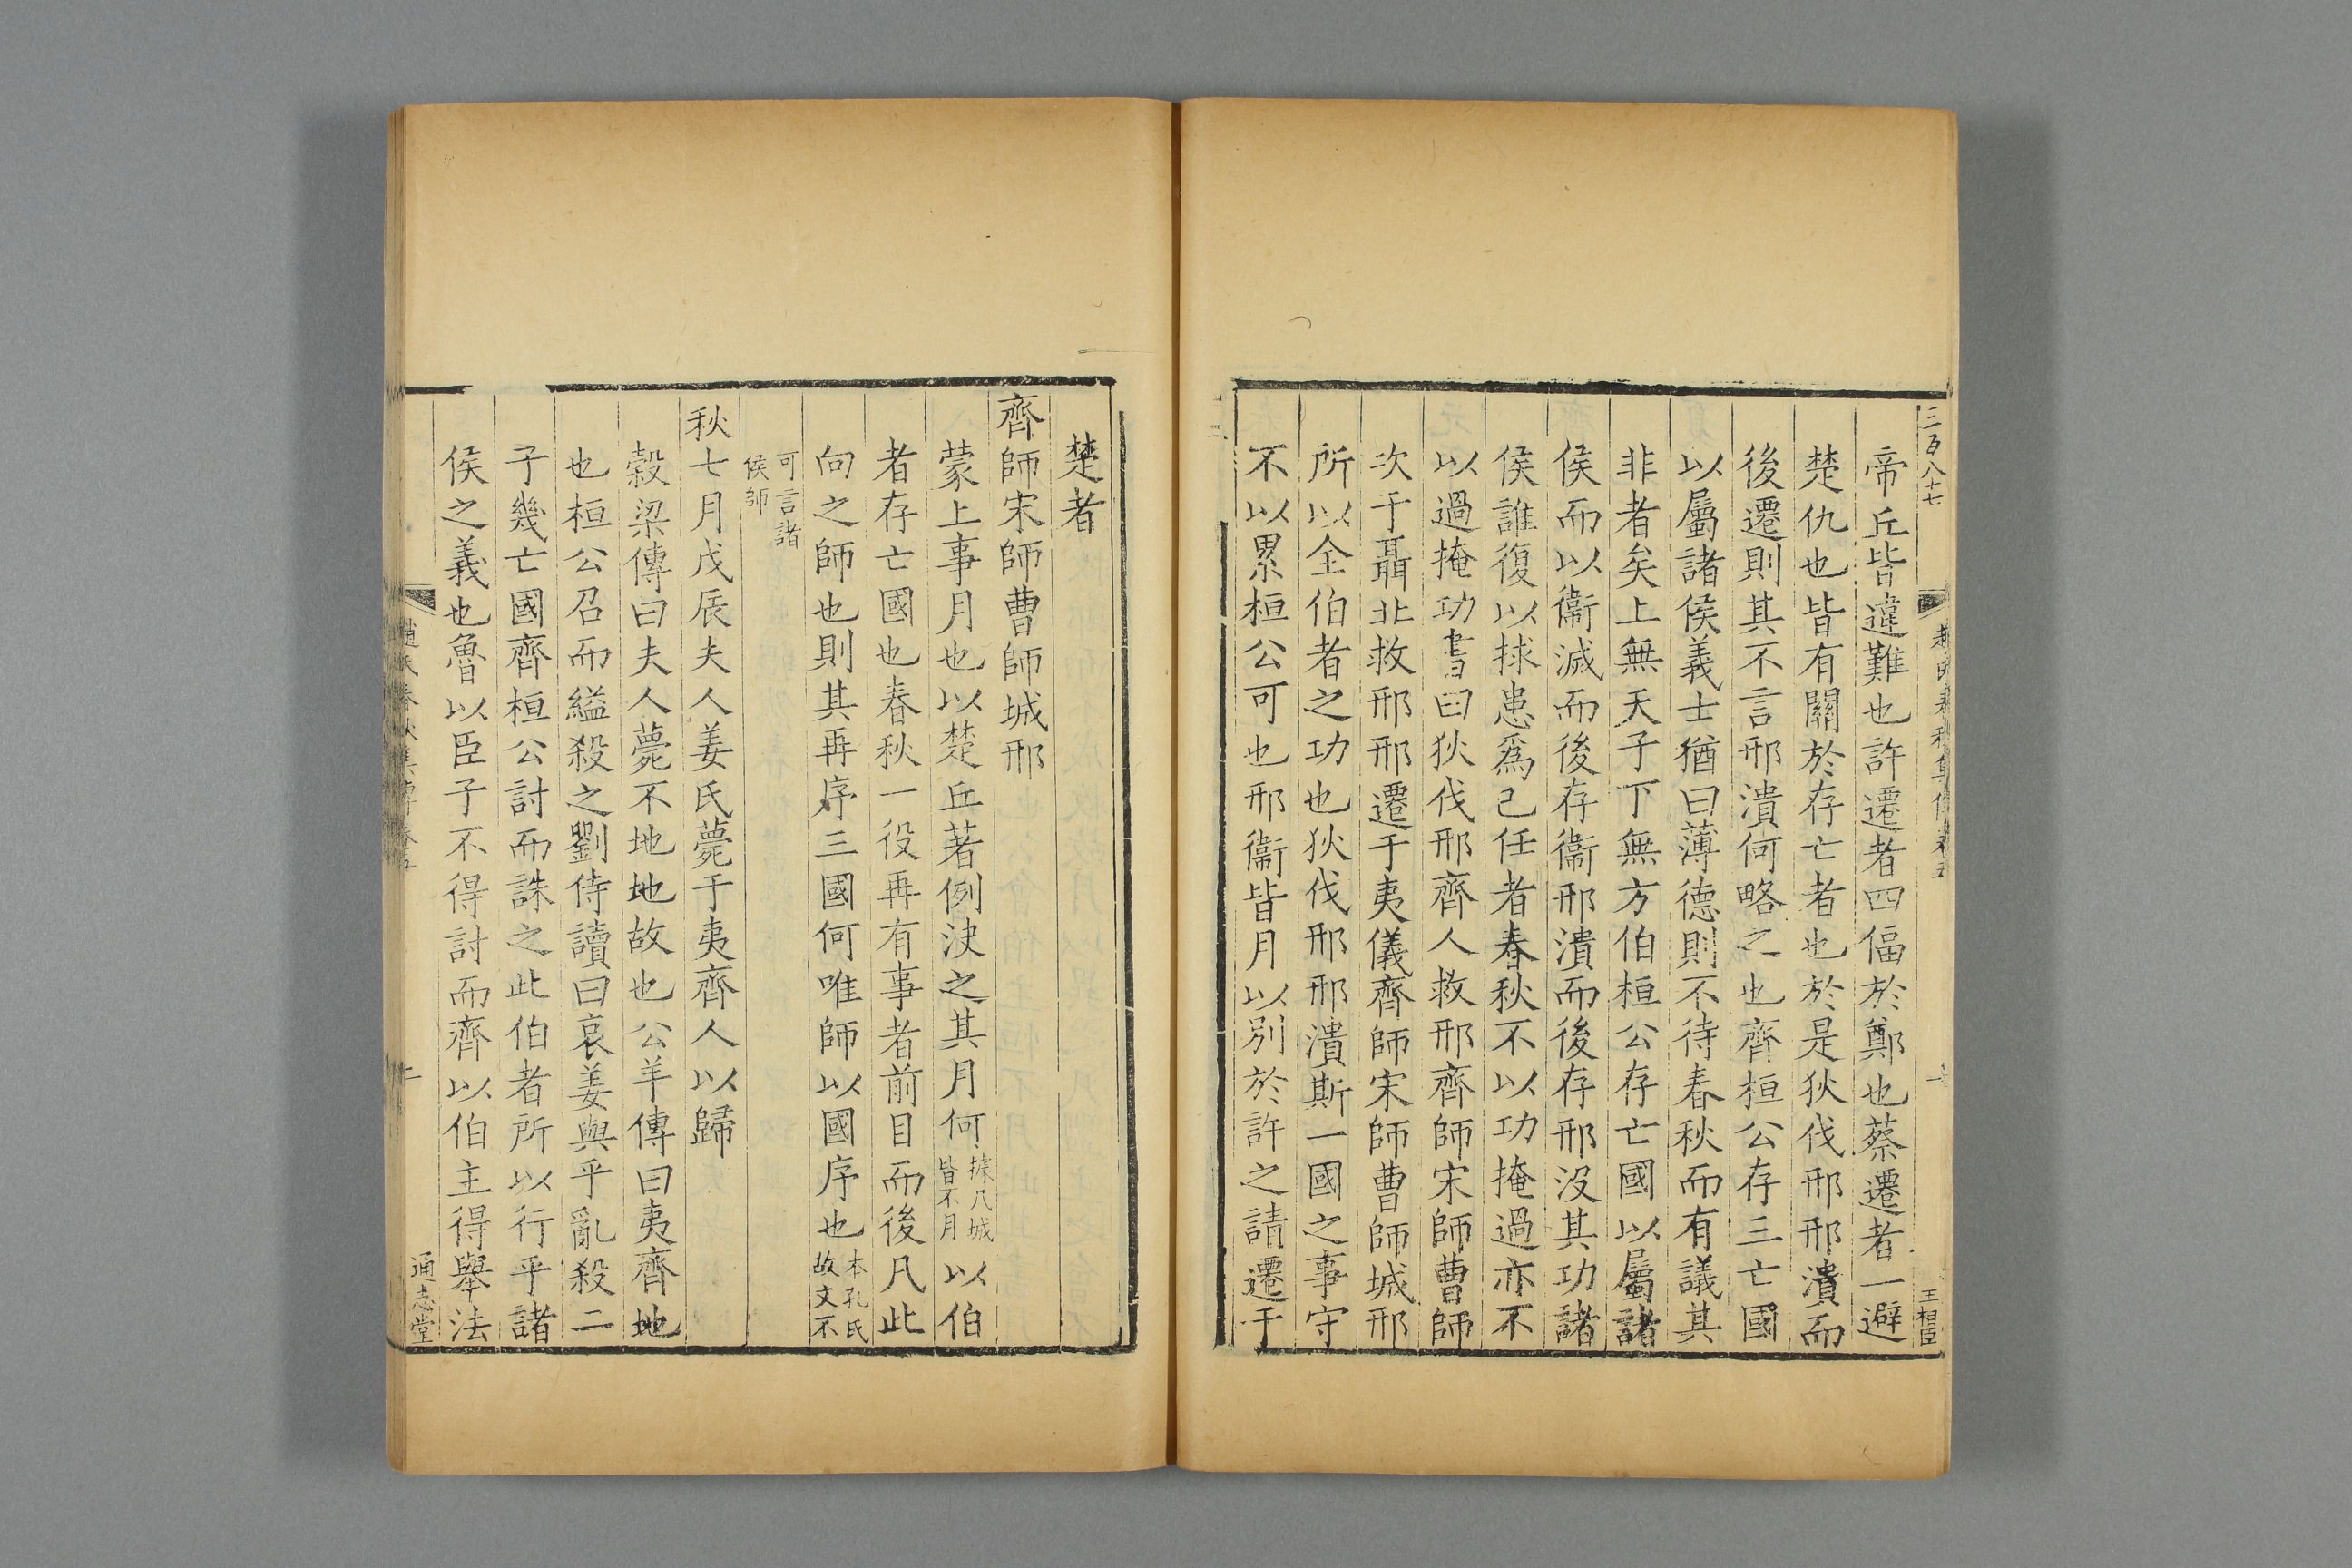 三百八十七
趙氏春秋集傳卷五
一
王相臣
帝丘皆違難也許遷者四偪於鄭也蔡遷者一避
楚仇也皆有關於存亡者也於是狄伐邢邢潰而
後遷則其不言邢潰何略之也齊桓公存三亡國
以屬諸侯義士猶曰薄德則不待春秋而有議其
非者矣上無天子下無方伯桓公存亡國以屬諸
侯而以衞滅而後存衞邢潰而後存邢沒其功諸
侯誰復以捄患爲己任者春秋不以功掩過亦不
以過掩功書曰狄伐邢齊人救邢齊師宋師曹師
次于聶北救邢邢遷于夷儀齊師宋師曹師城邢
所以全伯者之功也狄伐邢邢潰斯一國之事守
不以累桓公可也邢衞皆月以別於許之請遷于
楚者
齊師宋師曹師城邢
蒙上事月也以楚丘著例決之其月何據凡城皆不月以伯
者存亡國也春秋一役再有事者前目而後凡此
向之師也則其再序三國何唯師以國序也本孔氏故文不
可言諸侯師
秋七月戊辰夫人姜氏薨于夷齊人以歸
穀梁傳曰夫人薨不地地故也公羊傳曰夷齊地
也桓公召而縊殺之劉侍讀曰哀姜與乎亂殺二
子幾亡國齊桓公討而誅之此伯者所以行乎諸
侯之義也魯以臣子不得討而齊以伯主得舉法
趙氏春秋集傳卷五
二
通志堂